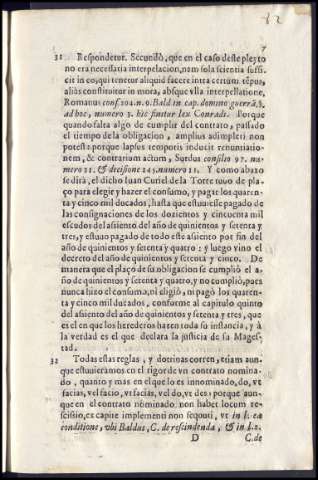 7
31 Respondetur. Secundò, que en el caso deste pleyto
no era necessaria interpelacion, nam sola scientia suffi-
cit in eo, qui tenetur aliquid facere intra certum tẽpus,
aliàs constituitur in mora, absque vlla interpellatione,
Romanus cons. 204. n. 9. Bald. in cap. domino guerrã, §.
ad hoc, numero 3. hic finitur lex Conradi. Porque
quando falta algo de cumplir del contrato, passado
el tiempo de la obligacion, amplius adimpleri non
potest: porque lapsus temporis inducit renuntiatio-
nem, & contrarium actum, Surdus consilio 97. nu-
mero 21. & decisione 243. numero 11. Y como abaxo
se dirà, el dicho Iuan Curiel de la Torre tuuo de pla-
ço para elegir y hazer el consumo, y pagar los quaren-
ta y cinco mil ducados, hasta que estuuiesse pagado de
las consignaciones de los dozientos y cincuenta mil
escudos del assiento del año de quinientos y setenta y
tres, y estuuo pagado de todo este assiento por fin del
año de quinientos y setenta y quatro: y luego vino el
decreto del año de quinientos y setenta y cinco. De
manera que el plaço de sa obligacion se cumplió el a-
ño de quinientos y setenta y quatro, y no cumplió, pues
nunca hizo el consumo, ni eligiò, ni pagò los quaren-
ta y cinco mil ducados, conforme al capitulo quinto
del assiento del año de setenta y tres, que
es el en que los herederos hazen toda su instancia, y à
la verdad es el que declara la justicia de su Mages-
tad.
32 Todas estas reglas, y dotrinas corren, etiam aun-
que estuuieramos en el rigor de vn contrato nomina-
do, quanto y mas en el que lo es innominado, do, vt
facias, vel facio, vt facias, vel do, vt des: porque aun-
que en el contrato nominado non habet locum re-
scissio, ex capite implementi non sequuti, vt in l. ea
conditione, vbi Baldus, C. de rescindenda, & in l. 2.
D C. de